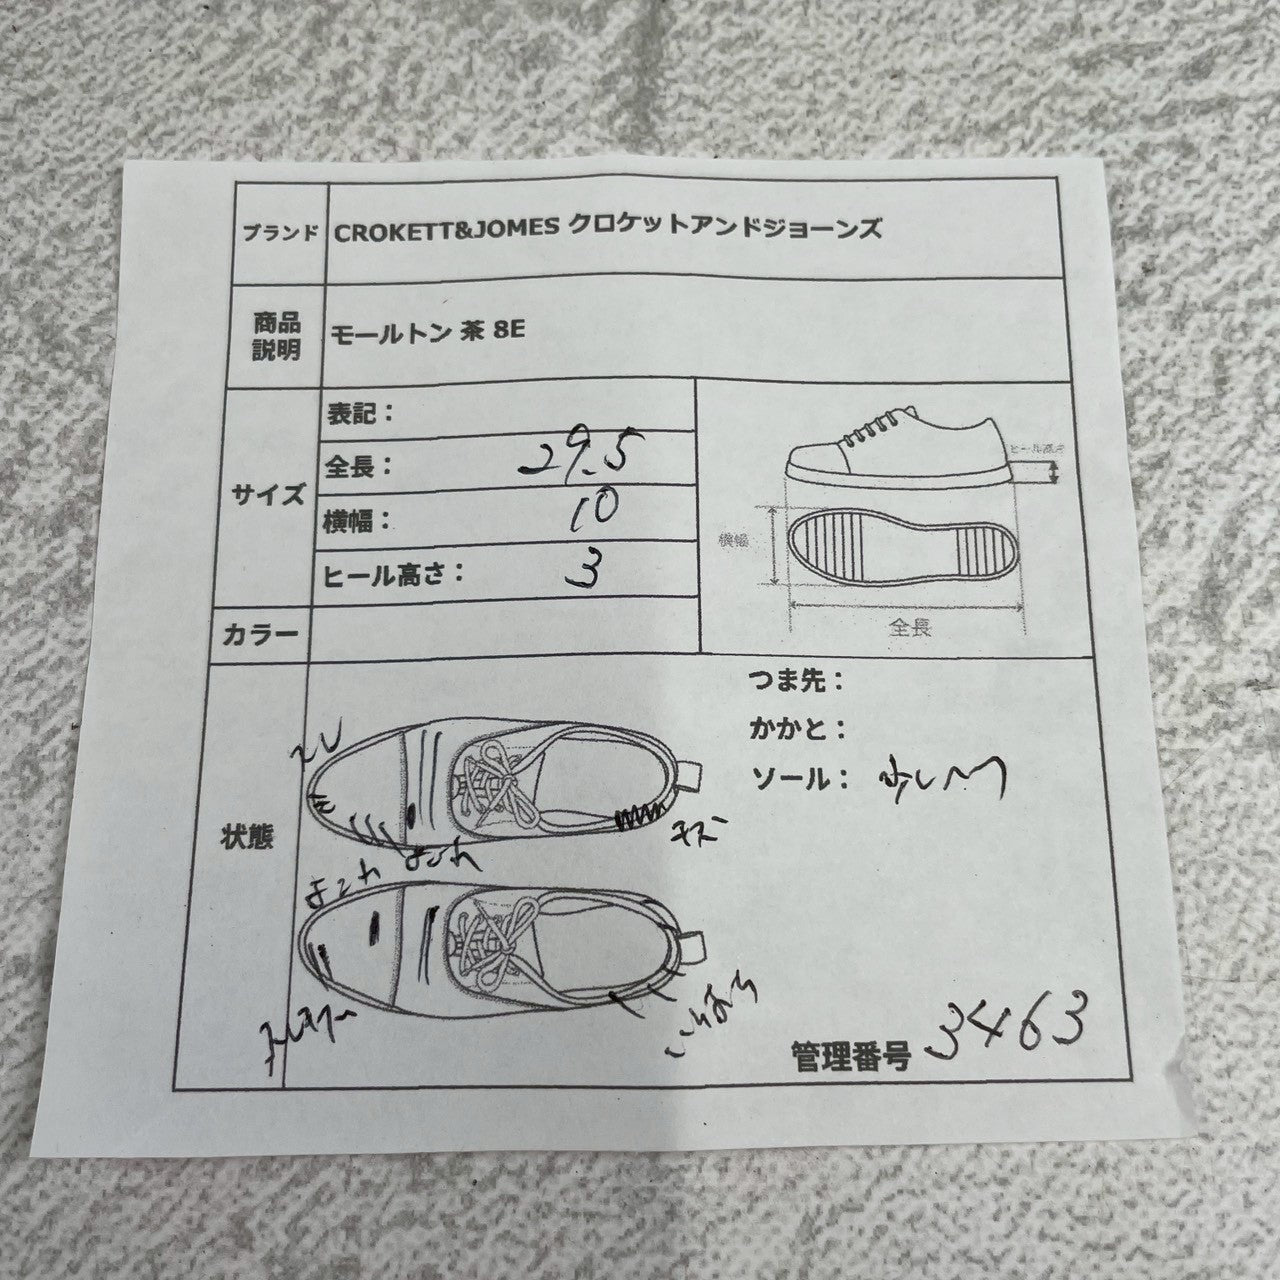 ブランド CROKETT&JOMES クロケットアンドジョーンズ
商品説明 モールトン 茶 8E
サイズ
表記：
全長： 29.5
横幅： 10
ヒール高さ： 3
ヒール高さ
横幅
全長
カラー
状態
つま先：
かかと：
ソール：
スレ
キズ
よごれ よごれ
管理番号 3463